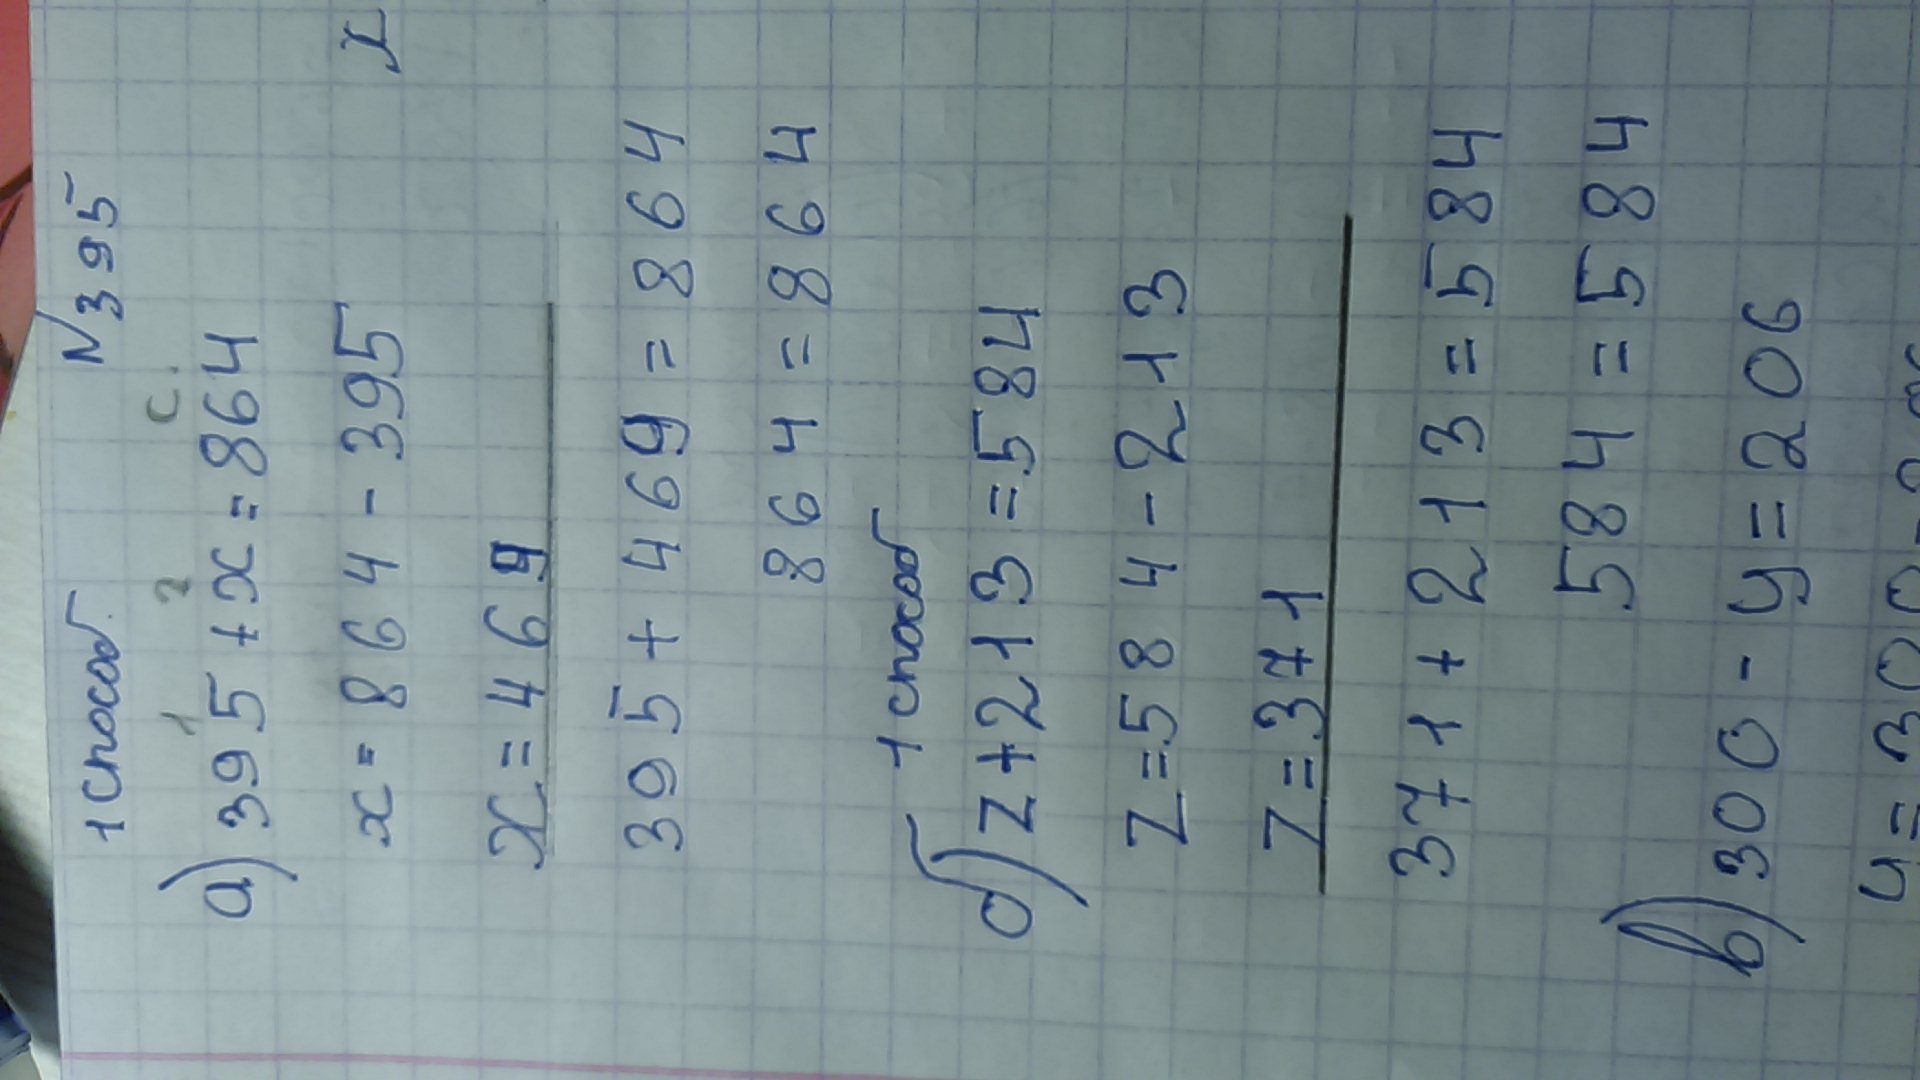 N 395
1 способ.
1 2 с.
а) 395 + x = 864
x = 864 - 395
x
x = 469
395 + 469 = 864
864 = 864
1 способ
б) z + 213 = 584
z = 584 - 213
z = 371
371 + 213 = 584
584 = 584
в) 300 - y = 206
y = 300 - 206